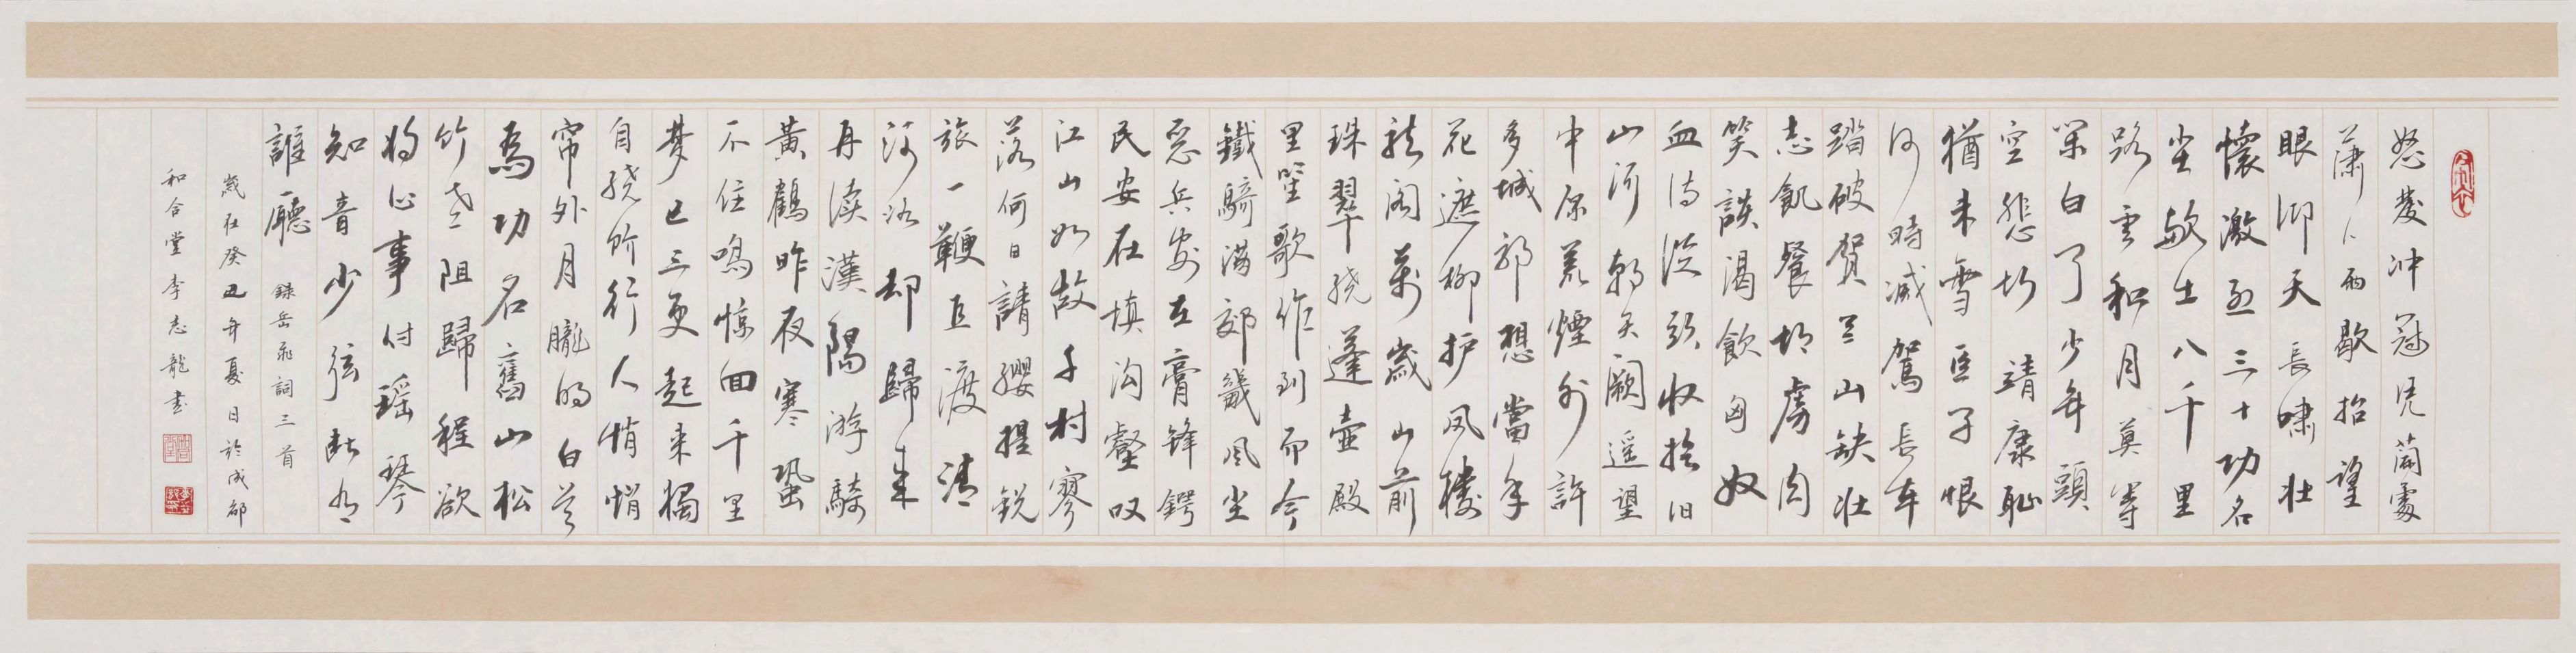 怒发冲冠凭蘭處
蕭〻雨歇抬望
眼仰天長啸壮
懷激烈三十功名
尘与土八千里
路雲和月莫等
闲白了少年頭
空悲切靖康耻
猶未雪臣子恨
何時減駕長车
踏破贺兰山缺壮
志飢餐胡虜肉
笑談渴飲匈奴
血待從头收拾旧
山河朝天闕遥望
中原荒煙外許
多城郭想當年
花遮柳护凤楼
龙阁萬歲山前
珠翠绕蓬壶殿
里笙歌作到而今
鐵騎满郊畿风尘
惡兵安在膏锋鍔
民安在填沟壑叹
江山如故千村寥
落何日請纓提锐
旅一鞭直渡清
河洛却歸来
再续漢陽游騎
黃鶴昨夜寒蛩
不住鳴惊回千里
夢已三更起来獨
自绕阶行人悄悄
帘外月朧明白首
為功名舊山松
竹老阻歸程欲
将心事付瑶琴
知音少弦断有
誰聽 錄岳飛詞三首
歲在癸丑年夏日於成都
和合堂李志龍书